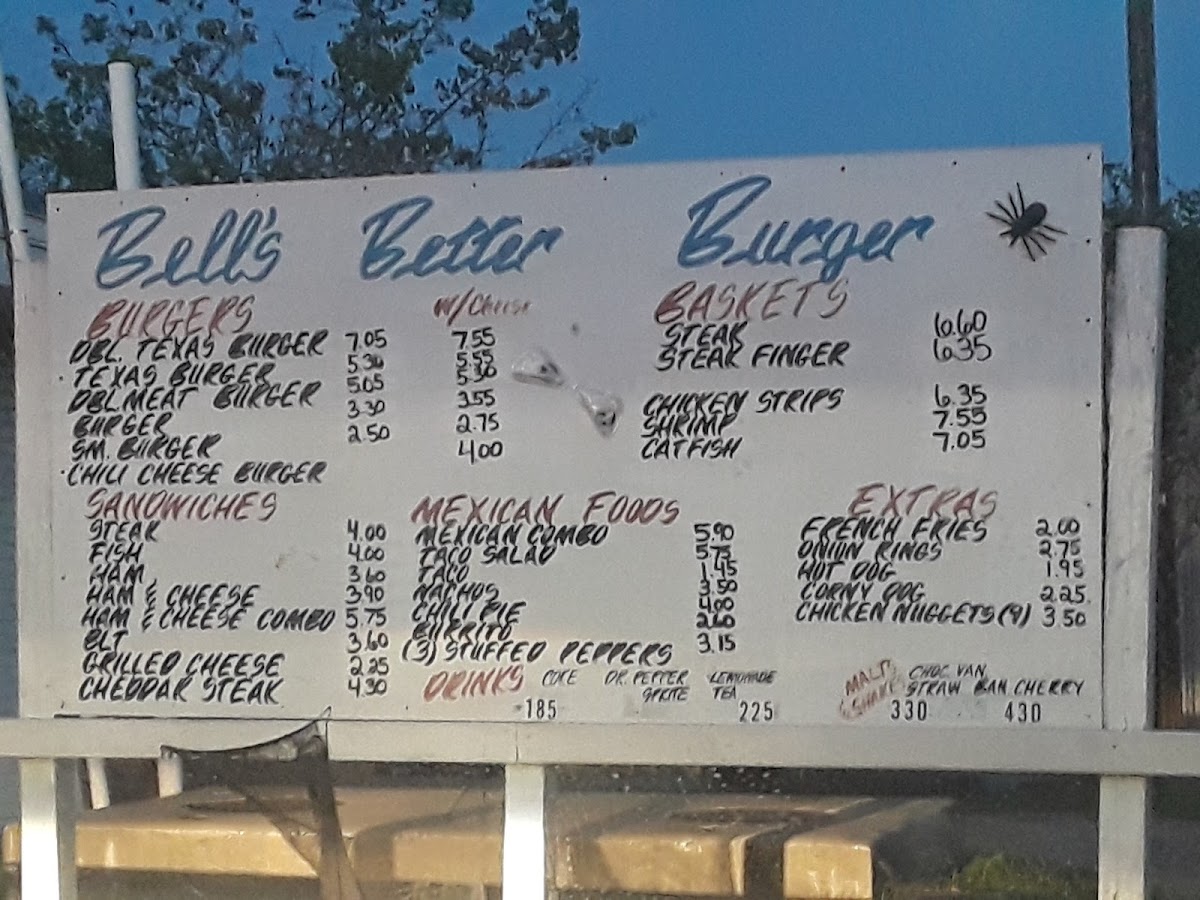 Bell's Better Burger
BURGERS w/Cheese
DBL. TEXAS BURGER 7.05 7.55
TEXAS BURGER 5.30 5.55
DBL MEAT BURGER 5.05 5.30
BURGER 3.30 3.55
SM. BURGER 2.50 2.75
CHILI CHEESE BURGER 4.00
BASKETS
STEAK 6.60
STEAK FINGER 6.35
CHICKEN STRIPS 6.35
SHRIMP 7.55
CATFISH 7.05
SANDWICHES
STEAK 4.00
FISH 4.00
HAM 3.60
HAM & CHEESE 3.90
HAM & CHEESE COMBO 5.75
BLT 3.60
GRILLED CHEESE 2.25
CHEDDAR STEAK 4.30
MEXICAN FOODS
MEXICAN COMBO 5.90
TACO SALAD 5.75
TACO 1.45
NACHOS 3.50
CHILI PIE 4.00
BURRITO 2.60
(3) STUFFED PEPPERS 3.15
EXTRAS
FRENCH FRIES 2.00
ONION RINGS 2.75
HOT DOG 1.95
CORNY DOG 2.25
CHICKEN NUGGETS (9) 3.50
DRINKS COKE DR. PEPPER LEMONADE
SPRITE TEA
185 225
MALTS
& SHAKES
CHOC. VAN.
STRAW BAN CHERRY
330 430